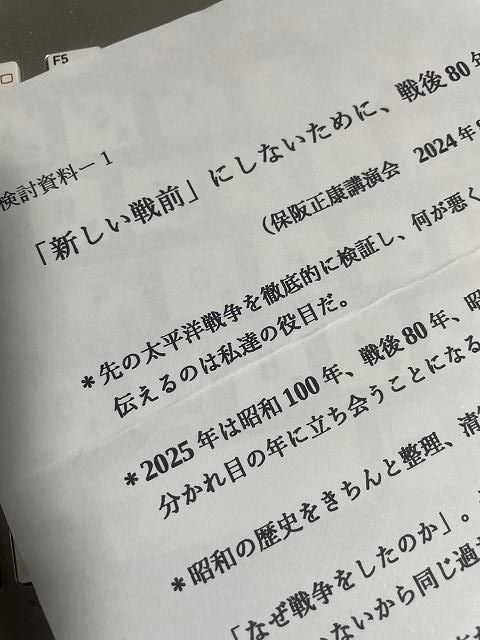 F5
検討資料－1
「新しい戦前」にしないために、戦後80年
(保阪正康講演会 2024年
*先の太平洋戦争を徹底的に検証し、何が悪く
伝えるのは私達の役目だ。
*2025年は昭和100年、戦後80年、昭
分かれ目の年に立ち会うことになる
*昭和の歴史をきちんと整理、清
「なぜ戦争をしたのか」。
ないから同じ過